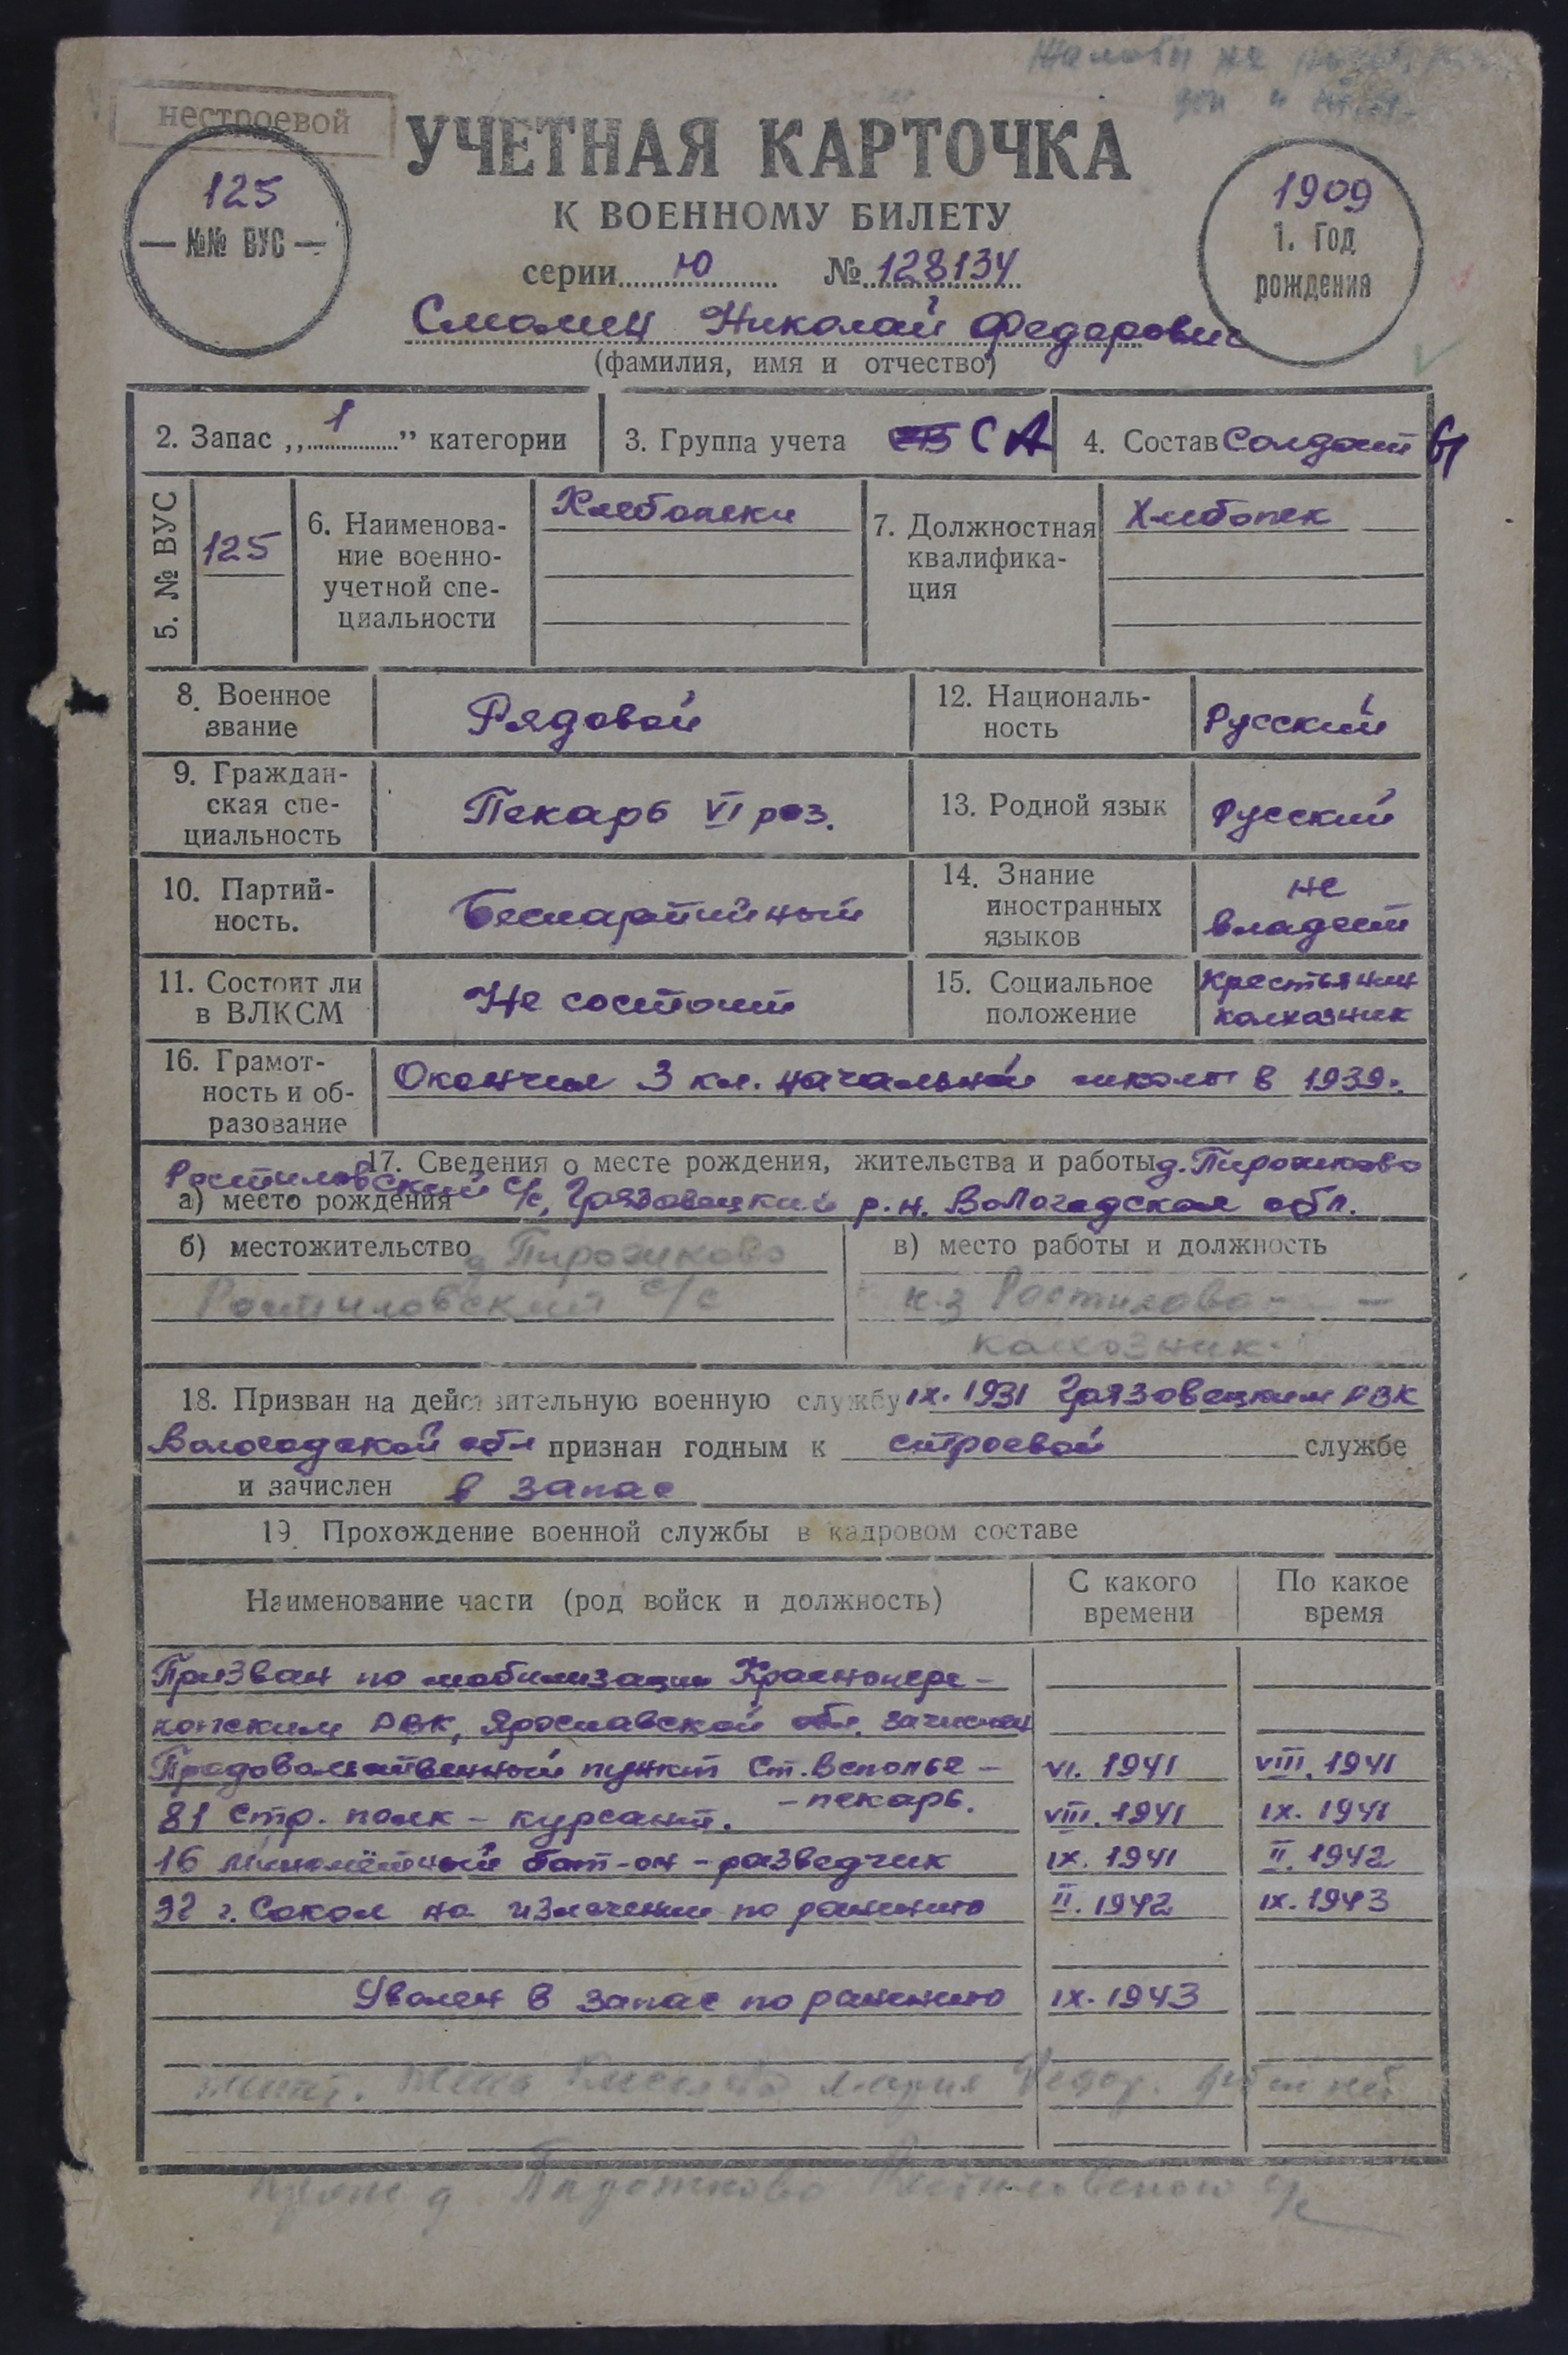 нестроевой
УЧЕТНАЯ КАРТОЧКА
К ВОЕННОМУ БИЛЕТУ
серии Ю № 128134
125
— №№ ВУС —
1909
1. Год
рождения
Николай Федорович
(фамилия, имя и отчество)
2. Запас „1” категории
3. Группа учета СА
4. Состав Солдаты
5. № ВУС
125
6. Наименова-
ние военно-
учетной спе-
циальности
Хлебопеки
7. Должностная
квалифика-
ция
Хлебопек
8. Военное
звание
Рядовой
12. Националь-
ность
Русский
9. Граждан-
ская спе-
циальность
Пекарь VI раз.
13. Родной язык
Русский
10. Партий-
ность.
Беспартийный
14. Знание
иностранных
языков
не
владеет
11. Состоит ли
в ВЛКСМ
Не состоит
15. Социальное
положение
Крестьянин
колхозник
16. Грамот-
ность и об-
разование
Окончил 3 кл. начальной школы в 1939г.
17. Сведения о месте рождения, жительства и работы д. Пирожково
а) место рождения Ростиловский с/с, Грязовецкий р.н. Вологодская обл.
б) местожительство д Пирожково
Ростиловский с/с
в) место работы и должность
к-з Ростилово
колхозник
18. Призван на действительную военную службу IX. 1931 Грязовецким РВК
Вологодской обл признан годным к строевой службе
и зачислен в запас
19. Прохождение военной службы в кадровом составе
Наименование части (род войск и должность)
С какого
времени
По какое
время
Призван по мобилизации Краснопере-
копским РВК, Ярославской обл. зачислен
Продовольственный пункт Ст. Всполье – VI. 1941 VIII. 1941
– пекарь.
81 стр. полк – курсант. VIII. 1941 IX. 1941
16 миномётный бат-он – разведчик IX. 1941 II. 1942
г. Сокол на излечении по ранению II. 1942 IX. 1943
Уволен в запас по ранению IX. 1943
жена Мария Федор.
д. Ростиловского с/с